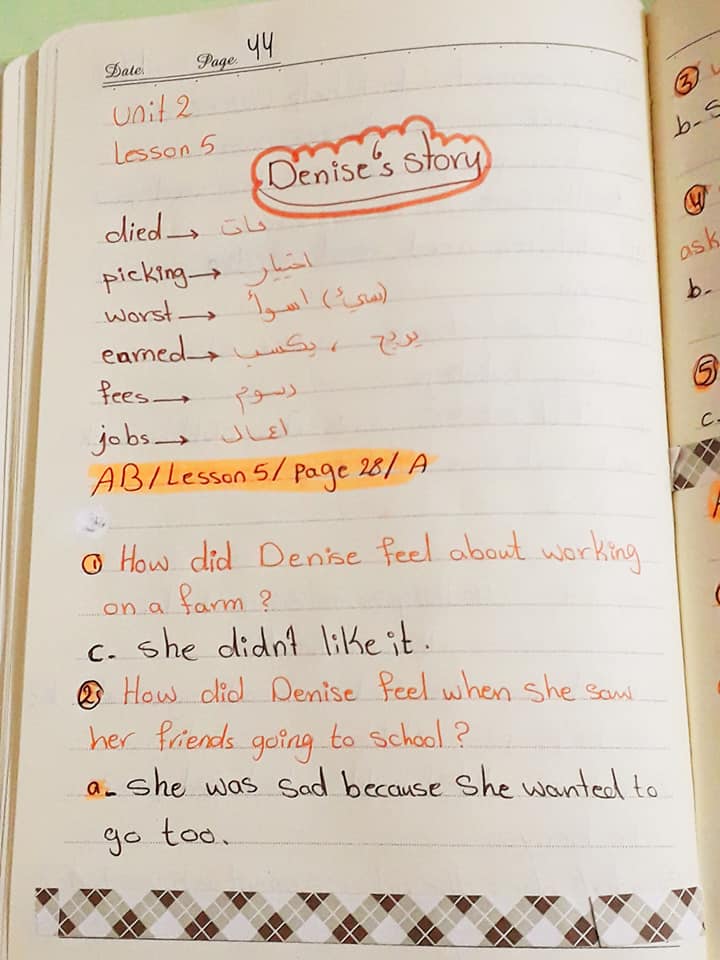 Date. Page. 44
Unit 2
Lesson 5
Denise's story
died → مات
picking → اختيار
worst → اسوأ (سيئ)
earned → يكسب ، يربح
fees → رسوم
jobs → اعمال
AB/Lesson 5/ page 28/ A
① How did Denise feel about working
on a farm?
c. she didn't like it.
② How did Denise feel when she saw
her friends going to school?
a- she was sad because she wanted to
go too.
③
b-
④
ask
b-
⑤
c.